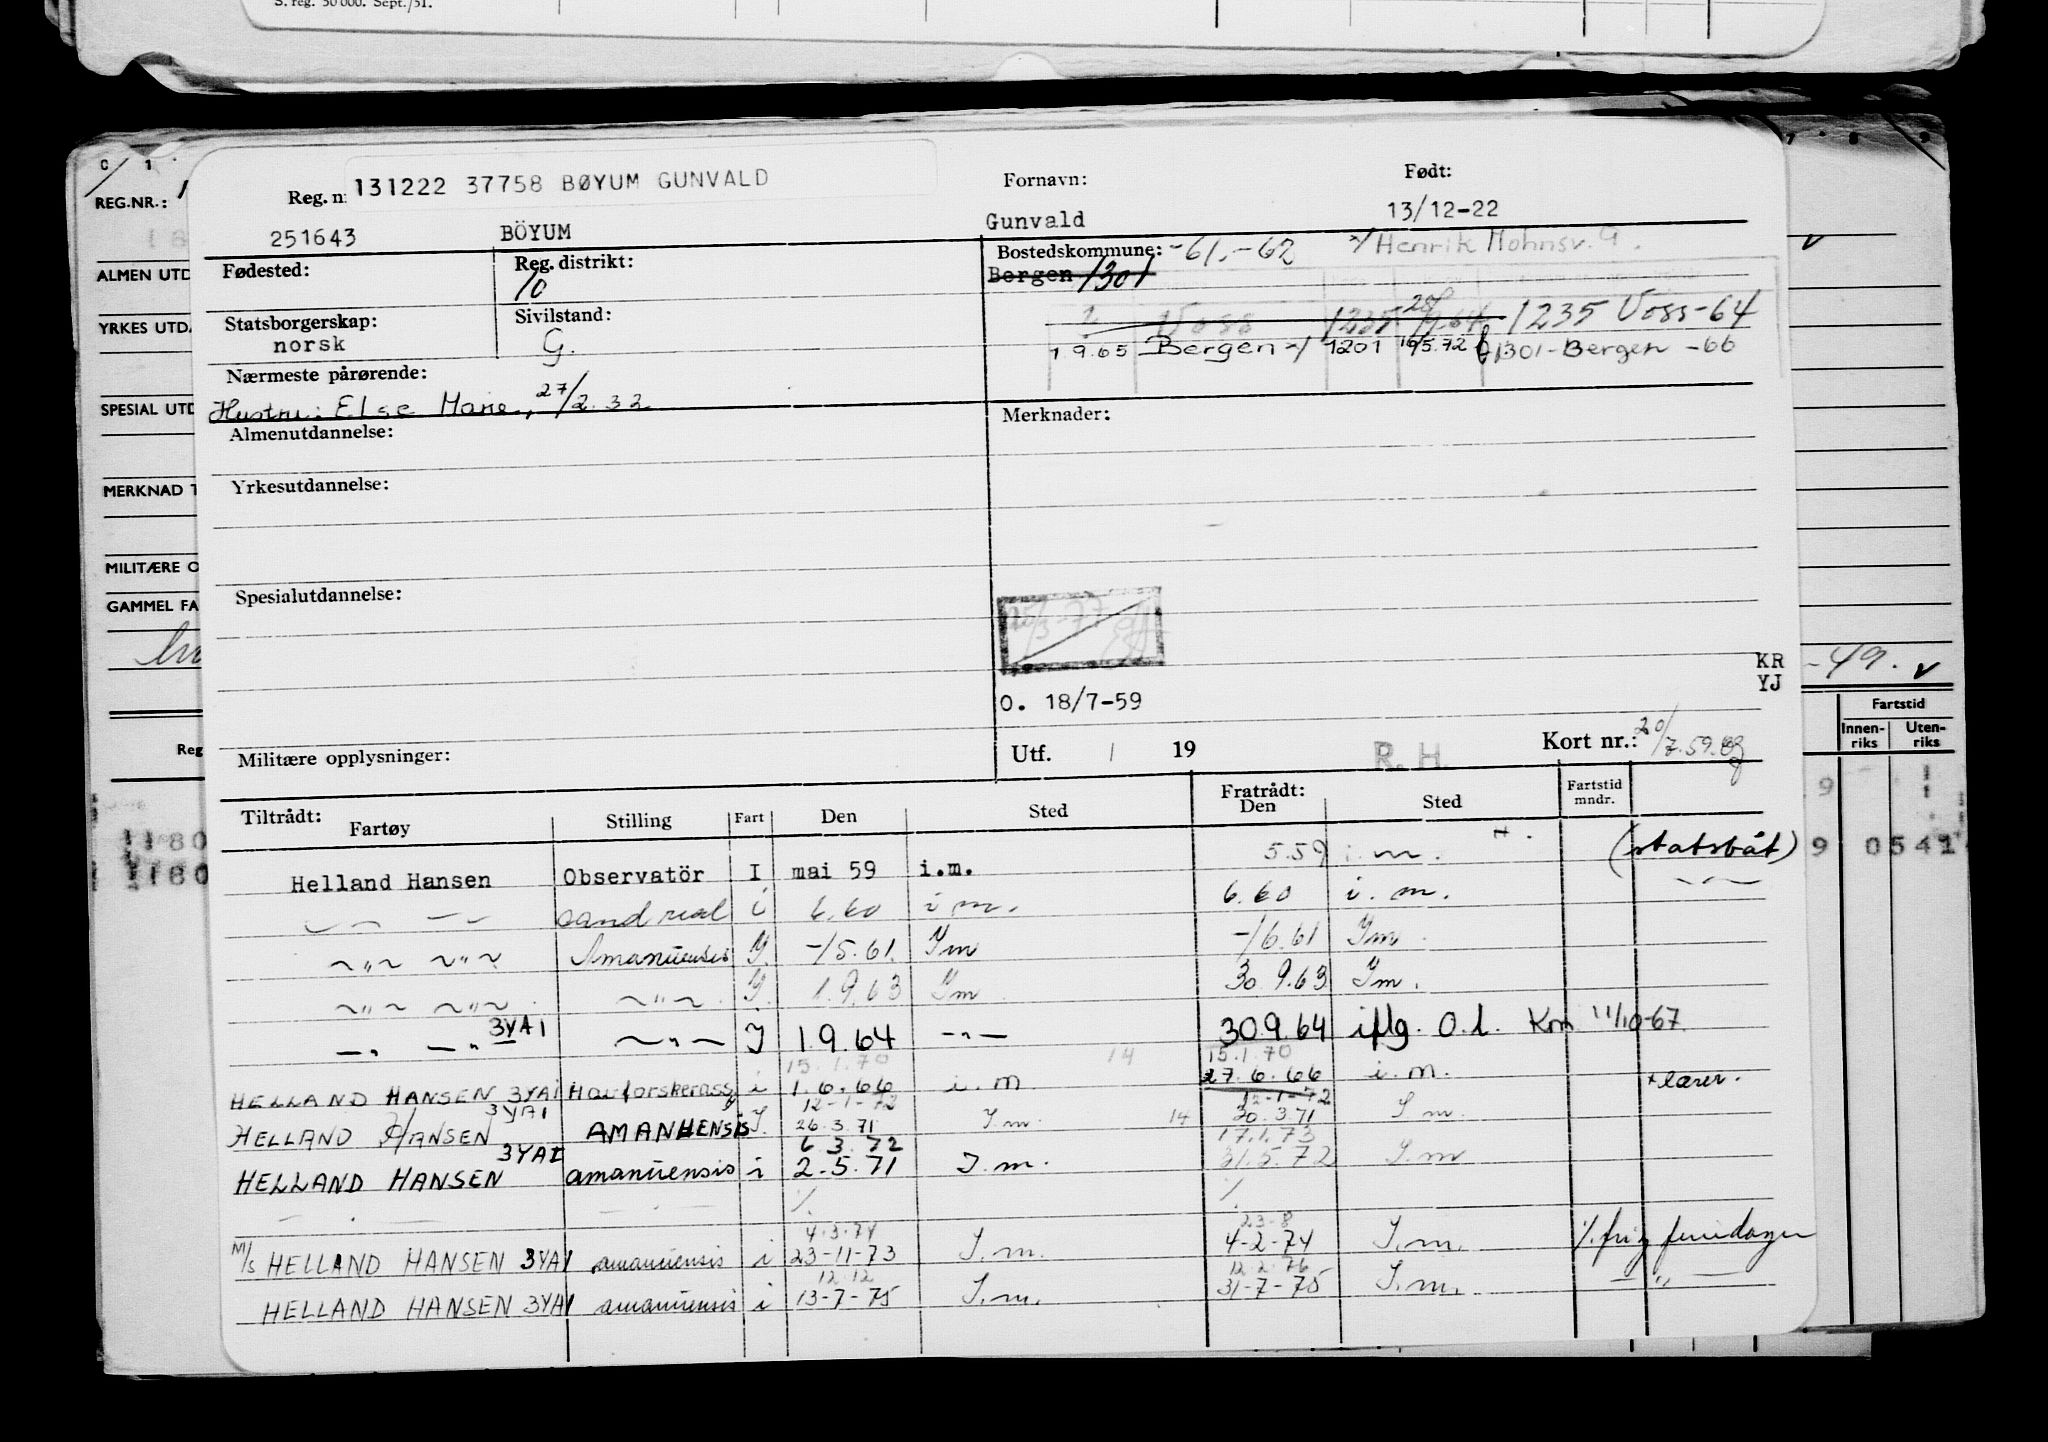 S. reg. 50 000. Sept./51.
C 1
7 8 9
REG.NR.:
ALMEN UTD
YRKES UTDA
SPESIAL UTD
MERKNAD T
MILITÆRE O
GAMMEL FA
-49. v
Reg
Fartstid
Innen-riks Uten-riks
1180
1180
9
9 0541
Reg. n 131222 37758 BØYUM GUNVALD Fornavn: Født:
251643 BÖYUM Gunvald 13/12-22
Fødested: Reg. distrikt: Bostedskommune: -61.-62 Henrik Mohnsv. 9.
10 Bergen 1301
Statsborgerskap: Sivilstand: 2 Voss 1235 1235 Voss-64
norsk G. 1.9.65 Bergen 1201 16/5.72 1301-Bergen -66
Nærmeste pårørende:
Hustru: Else Marie, 27/2.32
Almenutdannelse: Merknader:
Yrkesutdannelse:
Spesialutdannelse:
KR
YJ
O. 18/7-59
Militære opplysninger: Utf. / 19 R. H. Kort nr.: 20/7.59.
Tiltrådt: Fratrådt: Fartstid mndr.
Fartøy Stilling Fart Den Sted Den Sted
Helland Hansen Observatör I mai 59 i.m. 5.59 i.m. (statsbåt)
— — cand real i 6.60 i m. 6.60 i. m. —
~"~ ~"~ Amanuensis I. -/5.61. Im -/6.61 Im
~"~ ~"~ ~"~ I. 1.9.63 Im 30.9.63 Im.
—"— —"— 3YAI ~"~ I 1.9.64 —"— 30.9.64 iflg. O.l. Km 11/10-67
15.1.70 14 15.1.70
HELLAND HANSEN 3YAI Havforskerass i 1.6.66 i.m 27.6.66 i.m. + lærer.
3YAI 12-1-72 12-1-72
HELLAND HANSEN AMANUENSIS I. 26.3.71 I.m. 14 30.3.71 I m.
3YAI 6 3. 72 17.1.73
HELLAND HANSEN amanuensis i 2.5.71 I.m. 31.5.72 I.m
— — — % %
4.3.74 23-8
M/S HELLAND HANSEN 3YAI amanuensis i 23-11-73 I.m. 4-2-74 I.m. %. feriedager
12.12 12.2.76
HELLAND HANSEN 3YAI amanuensis i 13-7-75 I.m. 31-7-75 I.m. —"—